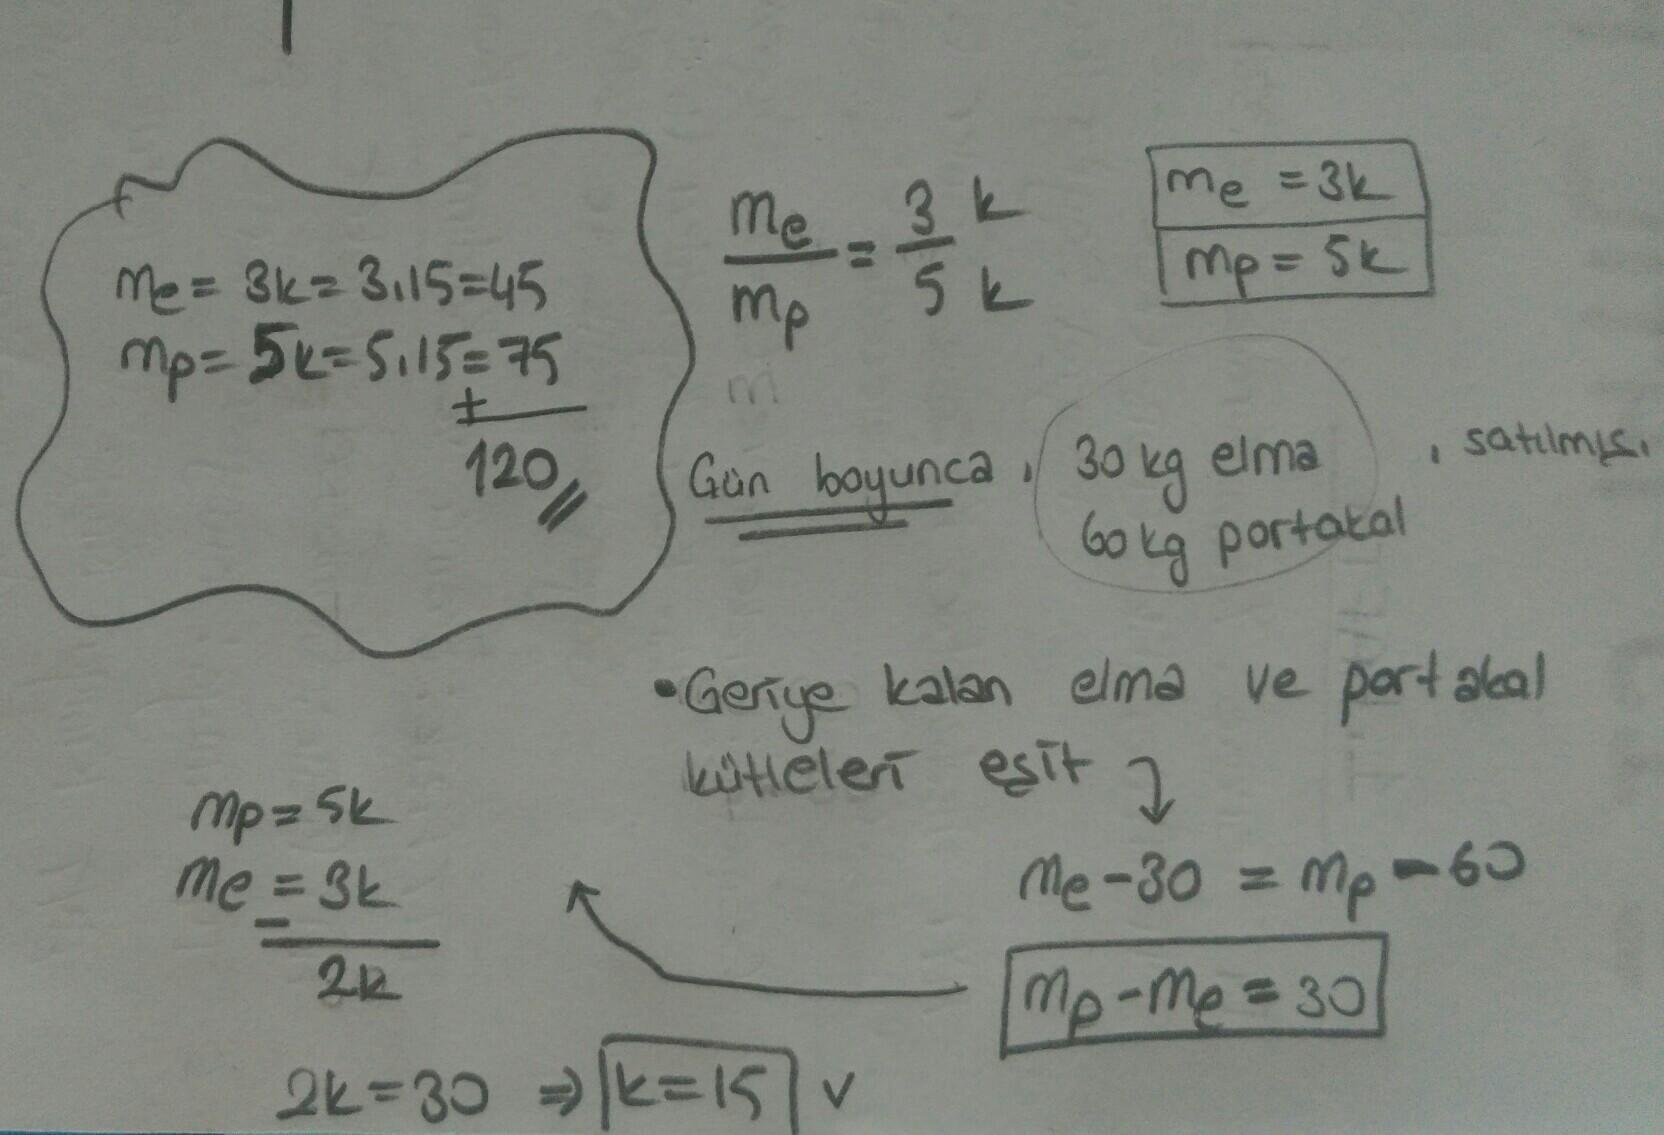 me = 3k = 3.15 = 45
mp = 5k = 5.15 = 75
+
120
me/mp = 3k/5k
me = 3k
mp = 5k
m
Gün boyunca, 30 kg elma, satılmış.
60 kg portakal
• Geriye kalan elma ve portakal
kütleleri eşit
me - 30 = mp - 60
mp - me = 30
mp = 5k
me = 3k
-
2k
2k = 30 ⇒ k = 15 v